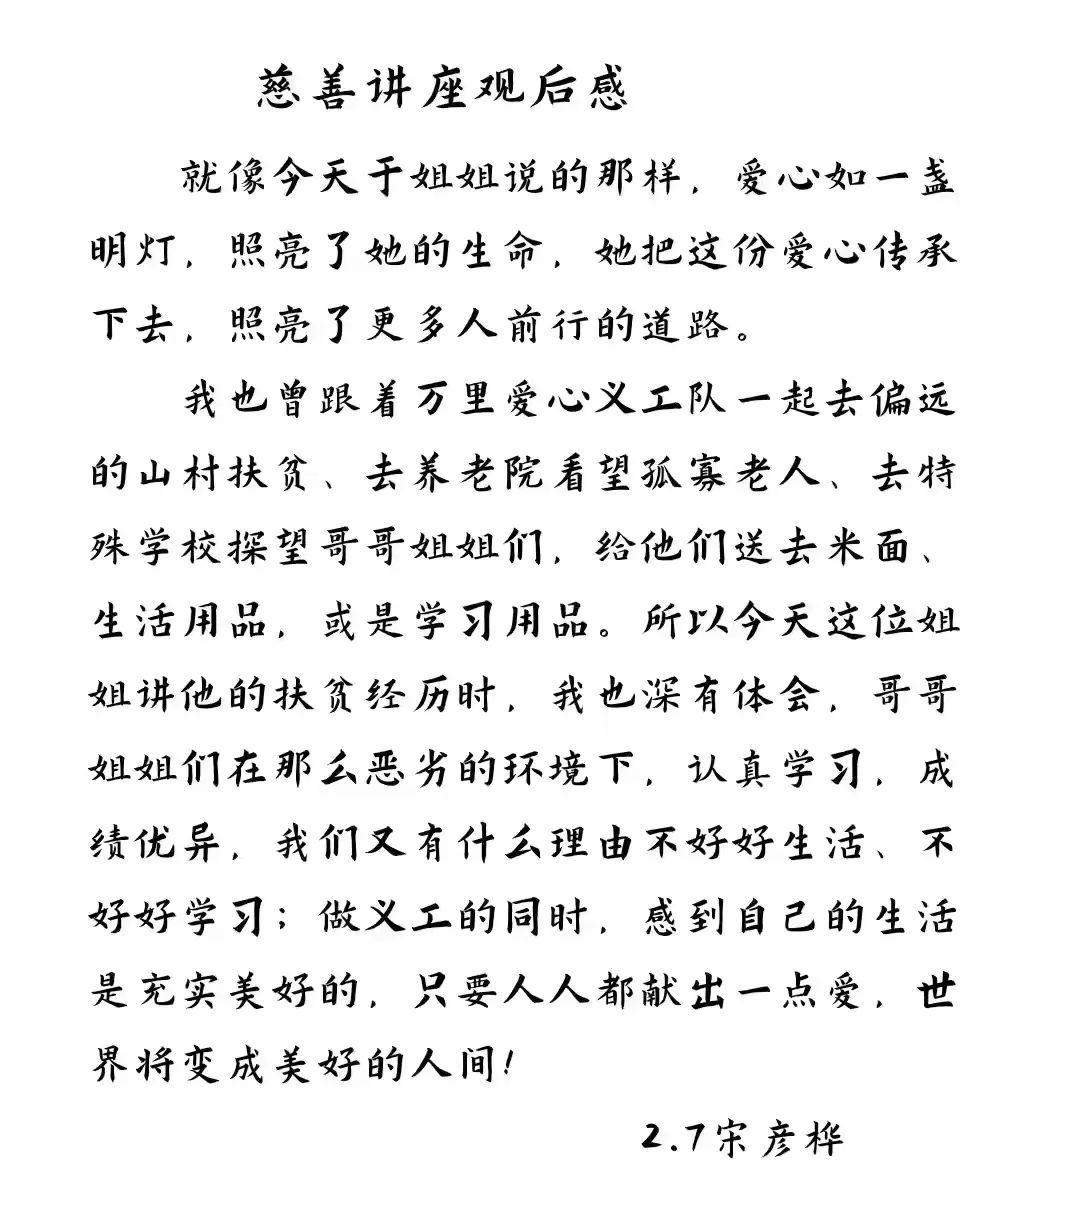 慈善讲座观后感
就像今天于姐姐说的那样，爱心如一盏
明灯，照亮了她的生命，她把这份爱心传承
下去，照亮了更多人前行的道路。
我也曾跟着万里爱心义工队一起去偏远
的山村扶贫、去养老院看望孤寡老人、去特
殊学校探望哥哥姐姐们，给他们送去米面、
生活用品，或是学习用品。所以今天这位姐
姐讲他的扶贫经历时，我也深有体会，哥哥
姐姐们在那么恶劣的环境下，认真学习，成
绩优异，我们又有什么理由不好好生活、不
好好学习；做义工的同时，感到自己的生活
是充实美好的，只要人人都献出一点爱，世
界将变成美好的人间！
2.7宋彦桦